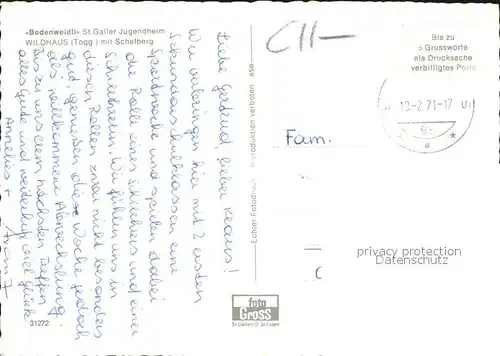 «Bodenweidli» St. Galler Jugendheim
WILDHAUS (Togg.) mit Schafberg
Liebe Gertrud, lieber Klaus!
Wir verbringen hier mit 2 ersten
Sekundarschulklassen eine
Sportwoche und spielen dabei
die Rolle eines und einer
Wir fühlen uns in
diesen Rollen zwar nicht besonders
gut, geniessen die Woche jedoch
als vollkommene Abwechslung.
Bis zu unserem nächsten Treffen
alles Gute und weiterhin viel Glück
Annelies +
Echter Fotodruck Reproduktion verboten
C11-
Bis zu
5 Grussworte
als Drucksache
verbilligtes Porto
-2.71-17
Fam.
privacy protection
Datenschutz
foto
Gross
St.Gallen
31272